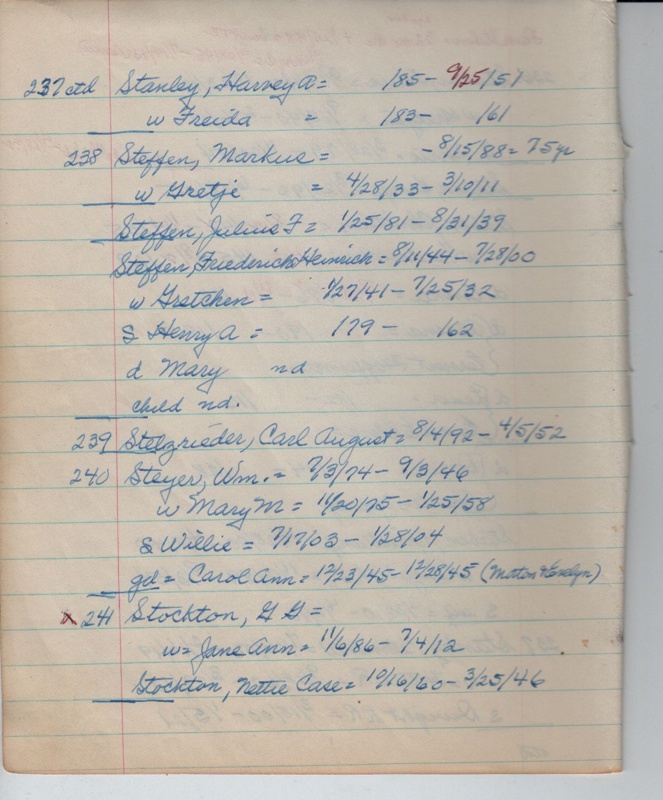 237 ctd Stanley, Harvey A = 185 - 9/25/57
w Freida = 183 - 161
238 Steffen, Markus = - 8/15/88 = 75 yr
w Gretje = 4/28/33 - 3/10/11
Steffen, Julius F = 1/25/81 - 8/31/39
Steffen, Friederich Heinrich = 8/11/44 - 7/28/00
w Gretchen = 1/27/41 - 7/25/32
s Henry A = 179 - 162
d Mary nd
child nd.
239 Stelzrieder, Carl August = 8/4/92 - 4/5/52
240 Steyer, Wm. = 7/3/74 - 9/3/46
w Mary M = 11/20/75 - 1/25/58
s Willie = 7/17/03 - 1/28/04
gd = Carol Ann = 12/23/45 - 12/28/45 (
x 241 Stockton, G G =
w = Jane Ann = 11/6/86 - 7/4/12
Stockton, Nettie Case = 10/16/60 - 3/25/46